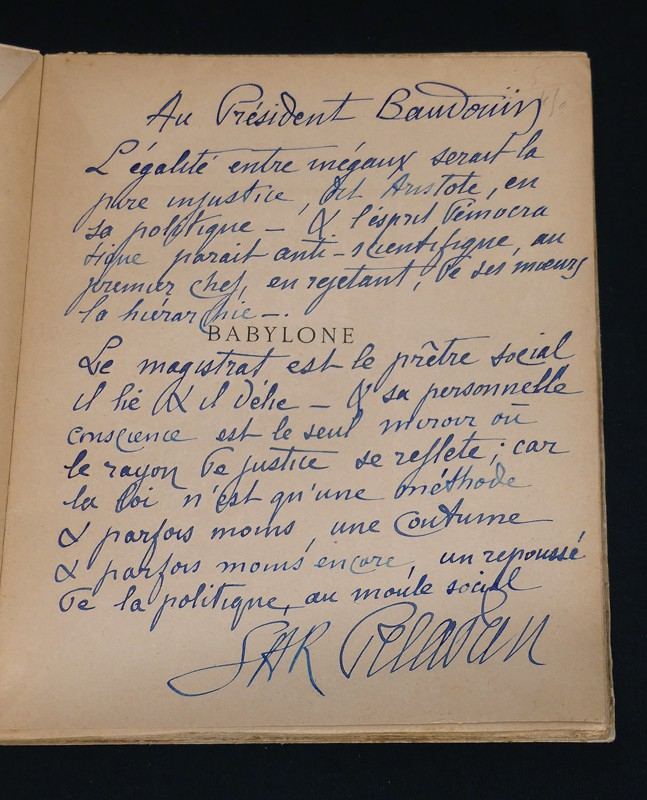 Au Président Baudouin
L'égalité entre inégaux serait la
pire injustice, dit Aristote, en
sa politique — & l'esprit Démocra
tique parait anti-scientifique, au
premier chef, en rejetant, de ses mœurs
la hiérarchie —.
BABYLONE
Le magistrat est le prêtre social
il lie & il délie — & sa personnelle
conscience est le seul miroir où
le rayon de justice se reflète; car
la loi n'est qu'une méthode
& parfois moins, une coutume
& parfois moins encore, un repoussé
de la politique, au moule social
SAR Peladan